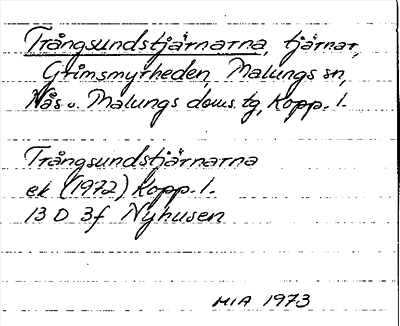 Trångsundstjärnarna, tjärnar,
Grimsmyrheden, Malungs sn,
Nås o. Malungs doms. tg, Kopp. l.
Trångsundstjärnarna
ek (1972) Kopp. l.
13 D 3f Nyhusen
MIA 1973